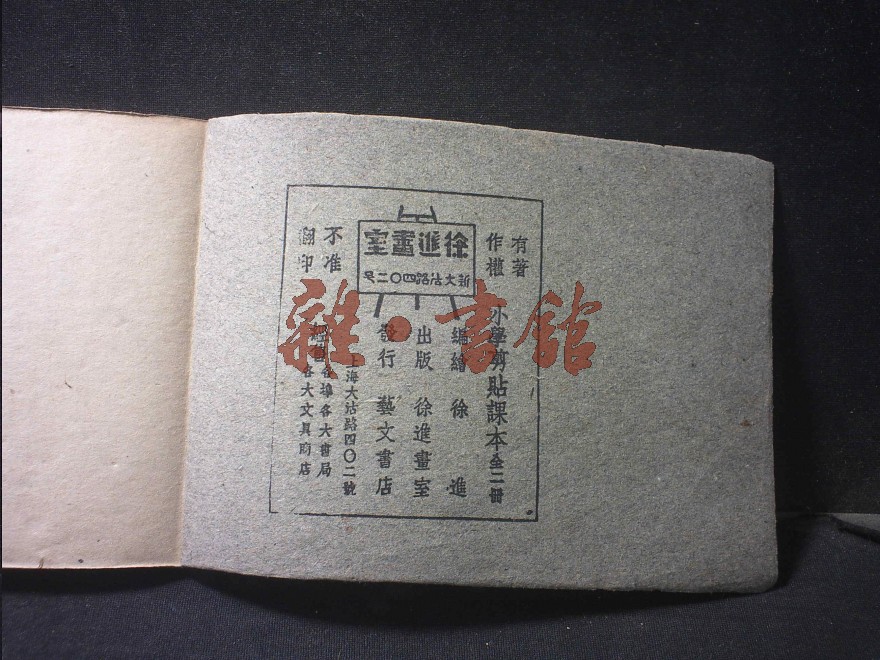 有著
作權
徐進畫室
新大沽路四〇二号
不准
翻印
小學剪貼課本全二冊
編繪 徐進
出版 徐進畫室
發行 藝文書店
上海大沽路四〇二號
各埠各大書局
各大文具商店
雜·書館